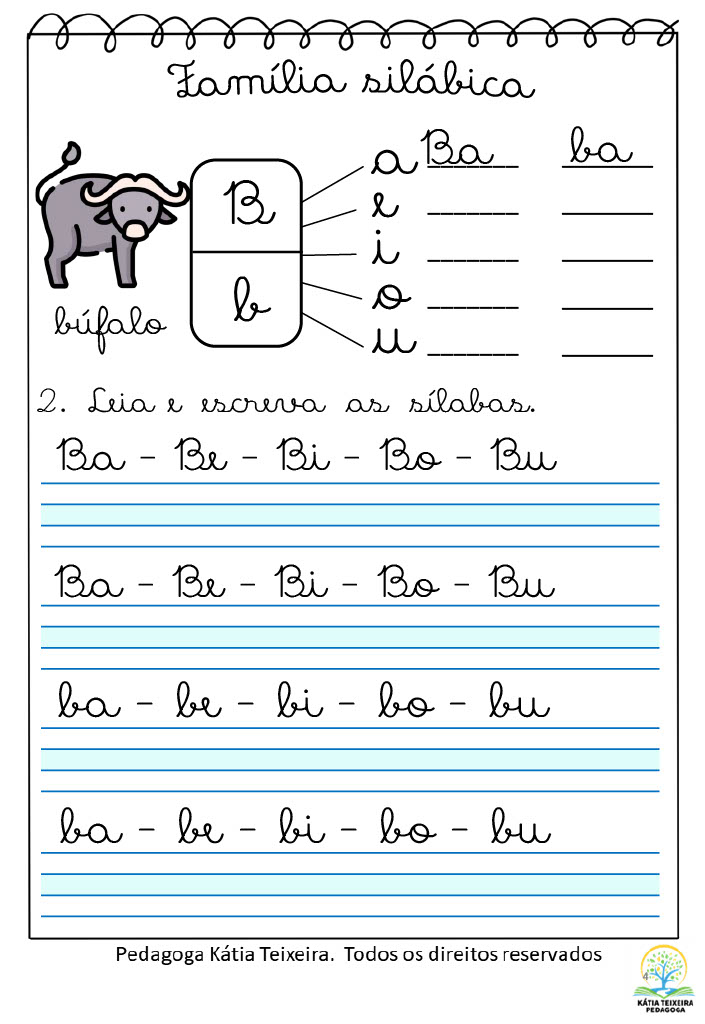 Família silábica
B
b
a Ba ba
e
i
o
u
búfalo
2. Leia e escreva as sílabas.
Ba - Be - Bi - Bo - Bu
Ba - Be - Bi - Bo - Bu
ba - be - bi - bo - bu
ba - be - bi - bo - bu
Pedagoga Kátia Teixeira. Todos os direitos reservados
4
KÁTIA TEIXEIRA
PEDAGOGA